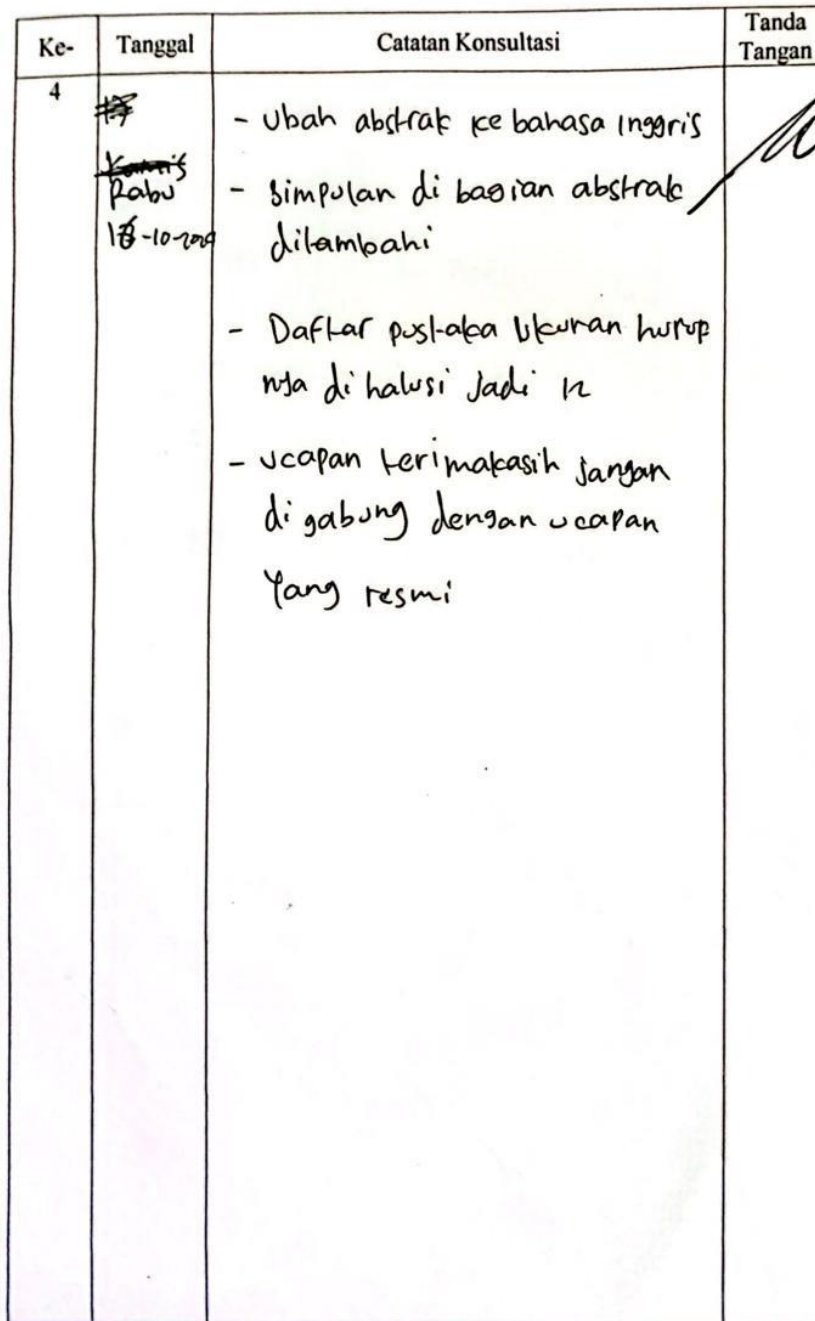 Ke- Tanggal Catatan Konsultasi Tanda Tangan
4
Rabu
- Ubah abstrak ke bahasa Inggris
- Simpulan di bagian abstrak
ditambahi
- Daftar pustaka Ukuran hurup
nya di halusi Jadi 12
- ucapan terimakasih jangan
di gabung dengan ucapan
Yang resmi